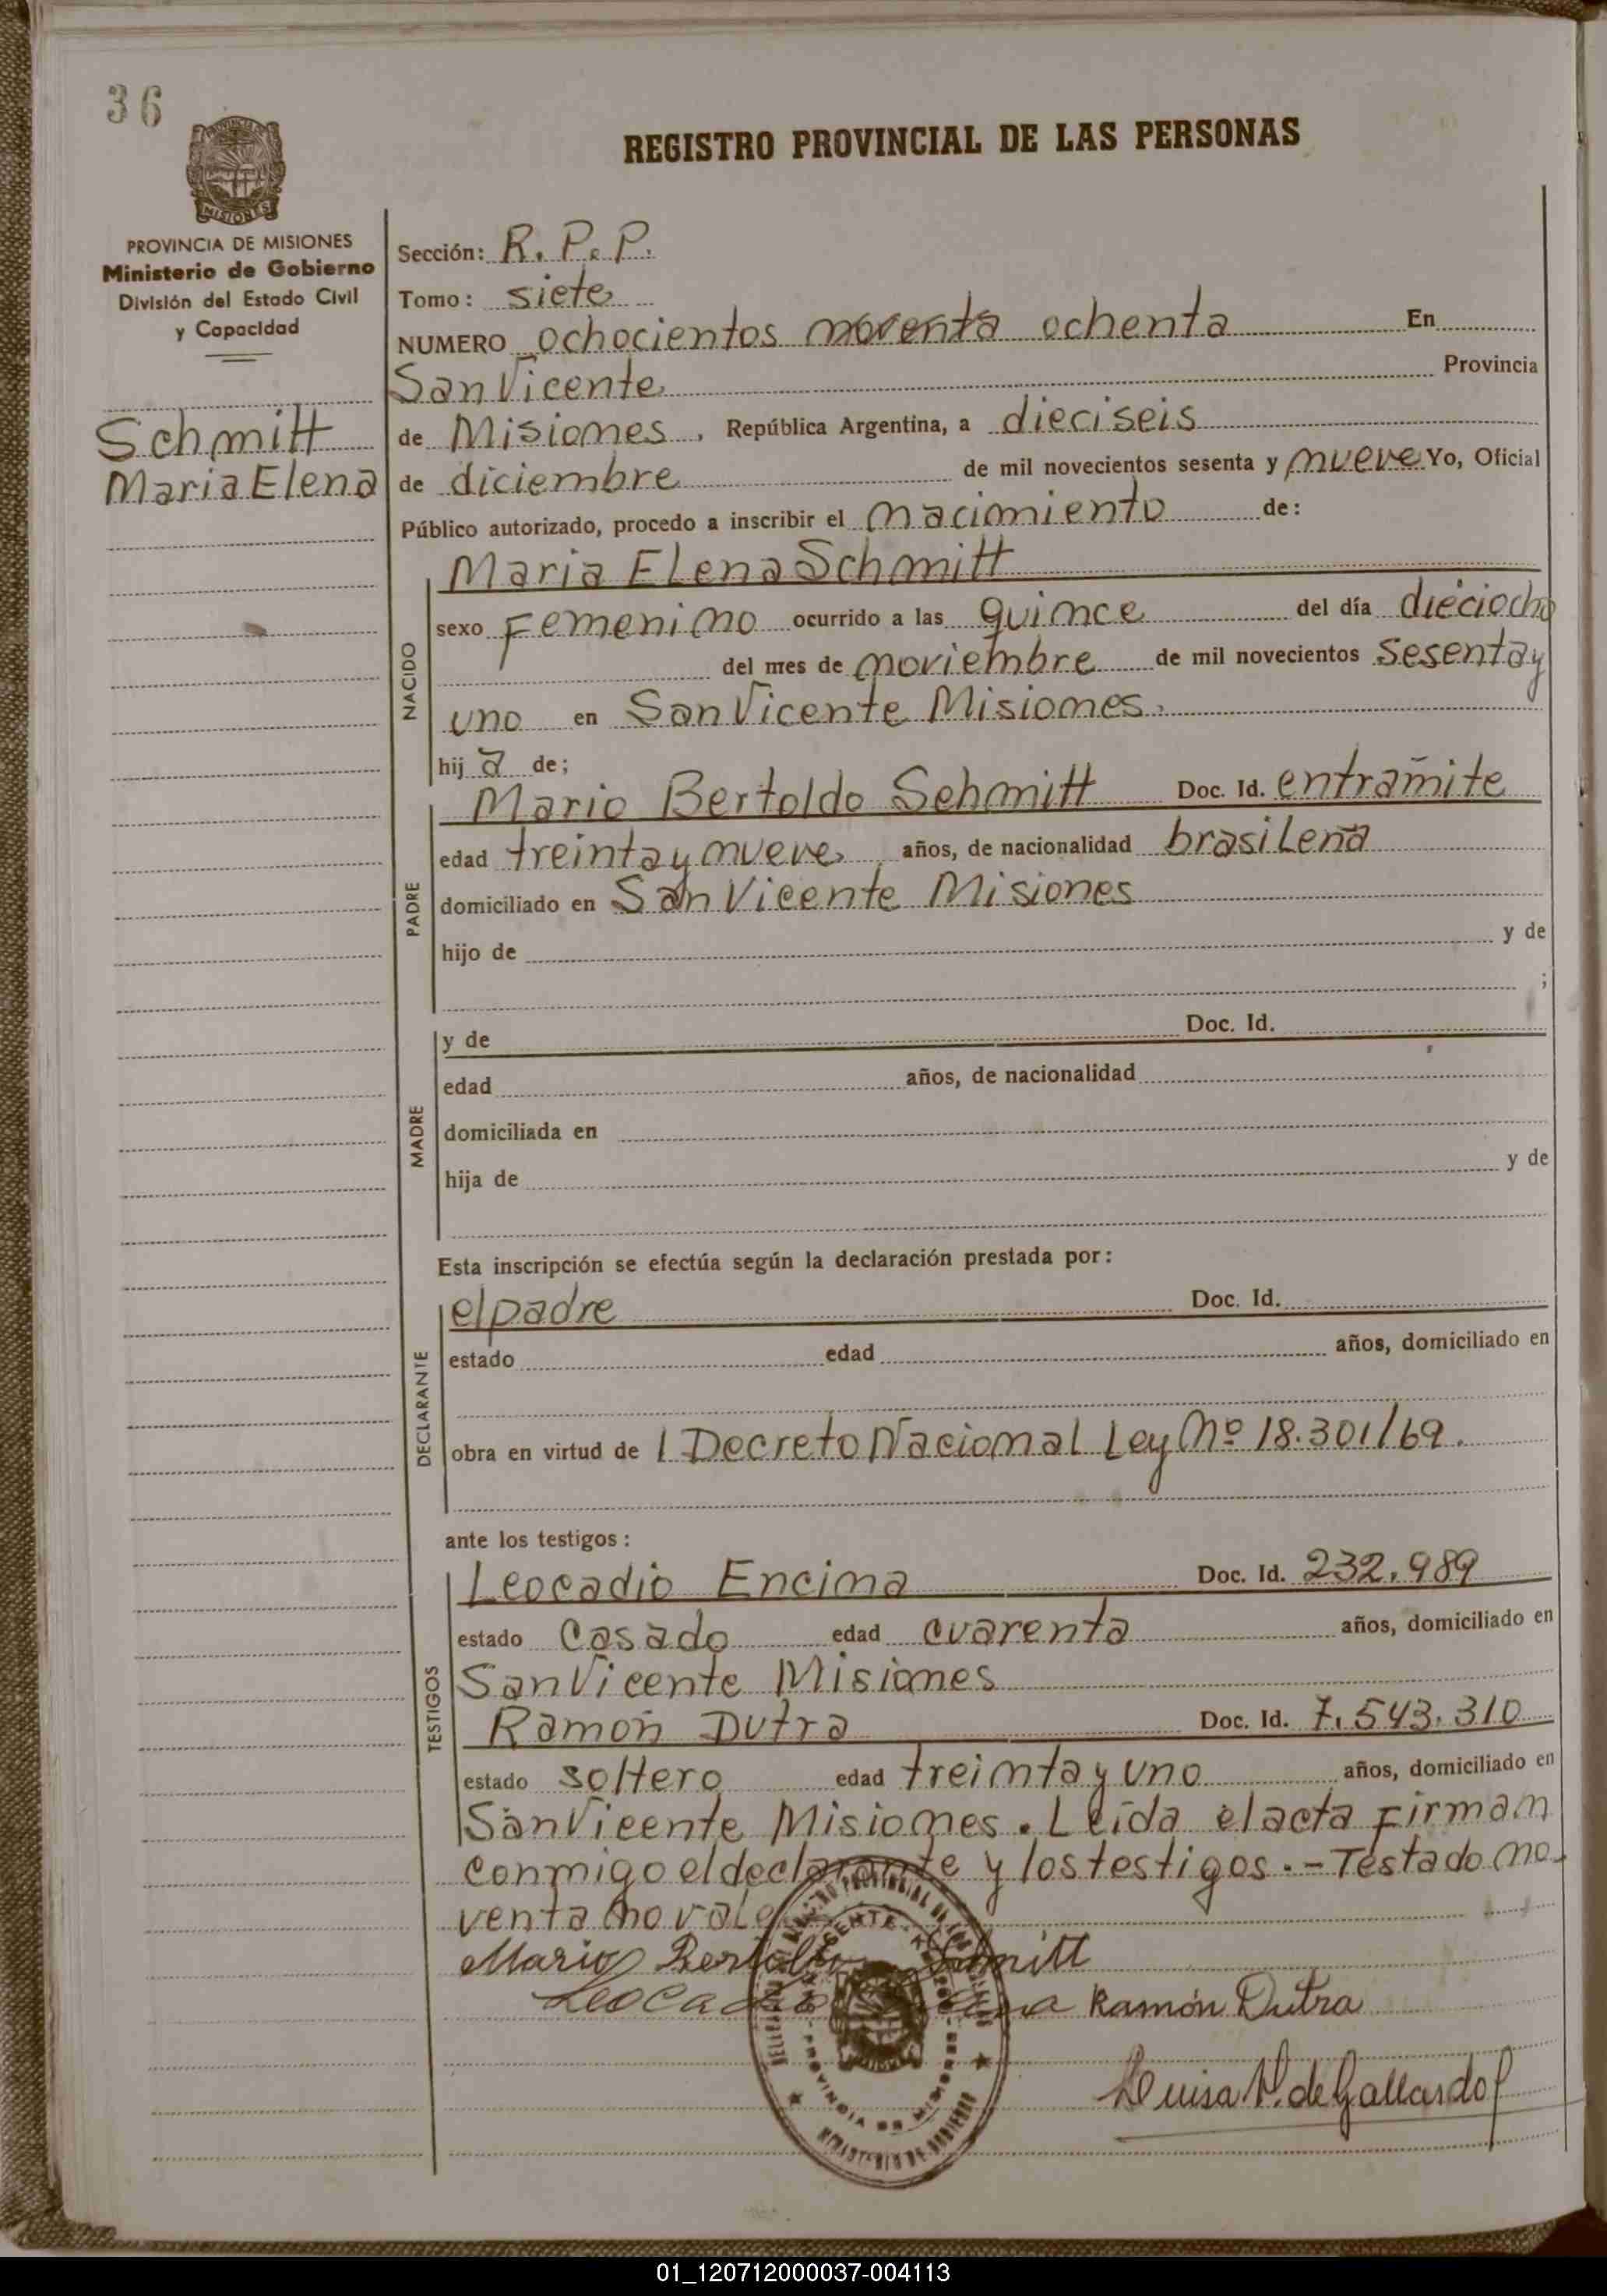 36
REGISTRO PROVINCIAL DE LAS PERSONAS
MISIONES
PROVINCIA DE MISIONES
Ministerio de Gobierno
División del Estado Civil
y Capacidad
Schmitt
Maria Elena
Sección: R. P. P.
Tomo: siete
NUMERO ochocientos noventa ochenta En
San Vicente Provincia
de Misiones, República Argentina, a dieciseis
de diciembre de mil novecientos sesenta y nueve Yo, Oficial
Público autorizado, procedo a inscribir el nacimiento de:
NACIDO
Maria Elena Schmitt
sexo Femenino ocurrido a las quince del día dieciocho
del mes de noviembre de mil novecientos sesenta y
uno en San Vicente Misiones.
hij a de;
PADRE
Mario Bertoldo Schmitt Doc. Id. en tramite
edad treinta y nueve años, de nacionalidad brasileña
domiciliado en San Vicente Misiones
hijo de y de
;
MADRE
y de Doc. Id.
edad años, de nacionalidad
domiciliada en
hija de y de
Esta inscripción se efectúa según la declaración prestada por:
DECLARANTE
el padre Doc. Id.
estado edad años, domiciliado en
obra en virtud de l Decreto Nacional Ley Nº 18.301/69.
ante los testigos:
TESTIGOS
Leocadio Encina Doc. Id. 232.989
estado casado edad cuarenta años, domiciliado en
San Vicente Misiones
Ramón Dutra Doc. Id. 7.543.310
estado soltero edad treinta y uno años, domiciliado en
San Vicente Misiones. Leída el acta firman
conmigo el declarante y los testigos.- Testado no-
venta no vale
Mario Bertoldo Schmitt
Leocadio Encina Ramón Dutra
Luisa V. de Gallardo
PROVINCIA DE MISIONES
MINISTERIO DE GOBIERNO
01_120712000037-004113